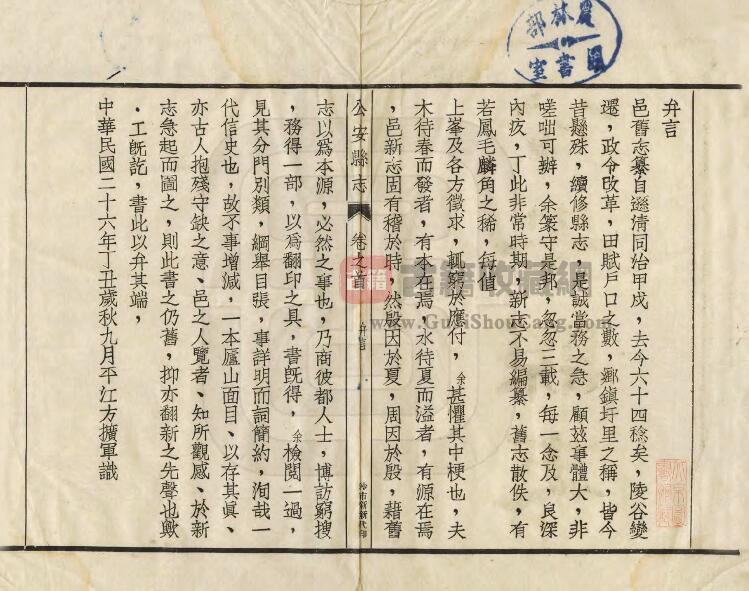 農林部
圖書室
弁言
邑舊志纂自遜清同治甲戌,去今六十四稔矣,陵谷變
遷,政令改革,田賦戶口之數,鄉鎮圩里之稱,皆今
昔懸殊,續修縣志,是誠當務之急,顧茲事體大,非
嗟咄可辦,余篆守是邦,忽忽三載,每一念及,良深
內疚,丁此非常時期,新志不易編纂,舊志散佚,有
若鳳毛麟角之稀,每值
上峯及各方徵求,輒窮於應付,余甚懼其中梗也,夫
木待春而發者,有本在焉,水待夏而溢者,有源在焉
,邑新志固有稽於時,然殷因於夏,周因於殷,藉舊
公安縣志 卷之首 弁言 沙市新新代印
志以爲本源,必然之事也,乃商彼都人士,博訪窮搜
,務得一部,以爲翻印之具,書旣得,余檢閱一過,
見其分門別類,綱舉目張,事詳明而詞簡約,洵哉一
代信史也,故不事增減,一本廬山面目、以存其眞、
亦古人抱殘守缺之意、邑之人覽者、知所觀感、於新
志急起而圖之,則此書之仍舊,抑亦翻新之先聲也歟
.工旣訖,書此以弁其端,
中華民國二十六年丁丑歲秋九月平江方擴軍識
古籍 古籍收藏網
www.GujiShouCang.com